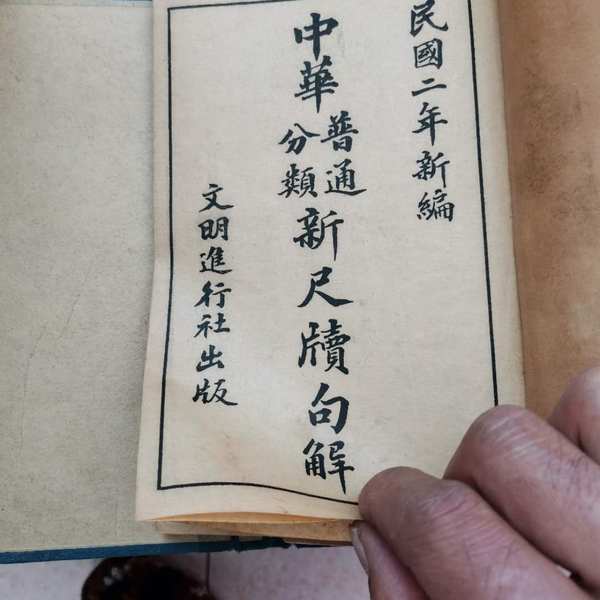 民國二年新編
中華普通分類新尺牘句解
文明進行社出版